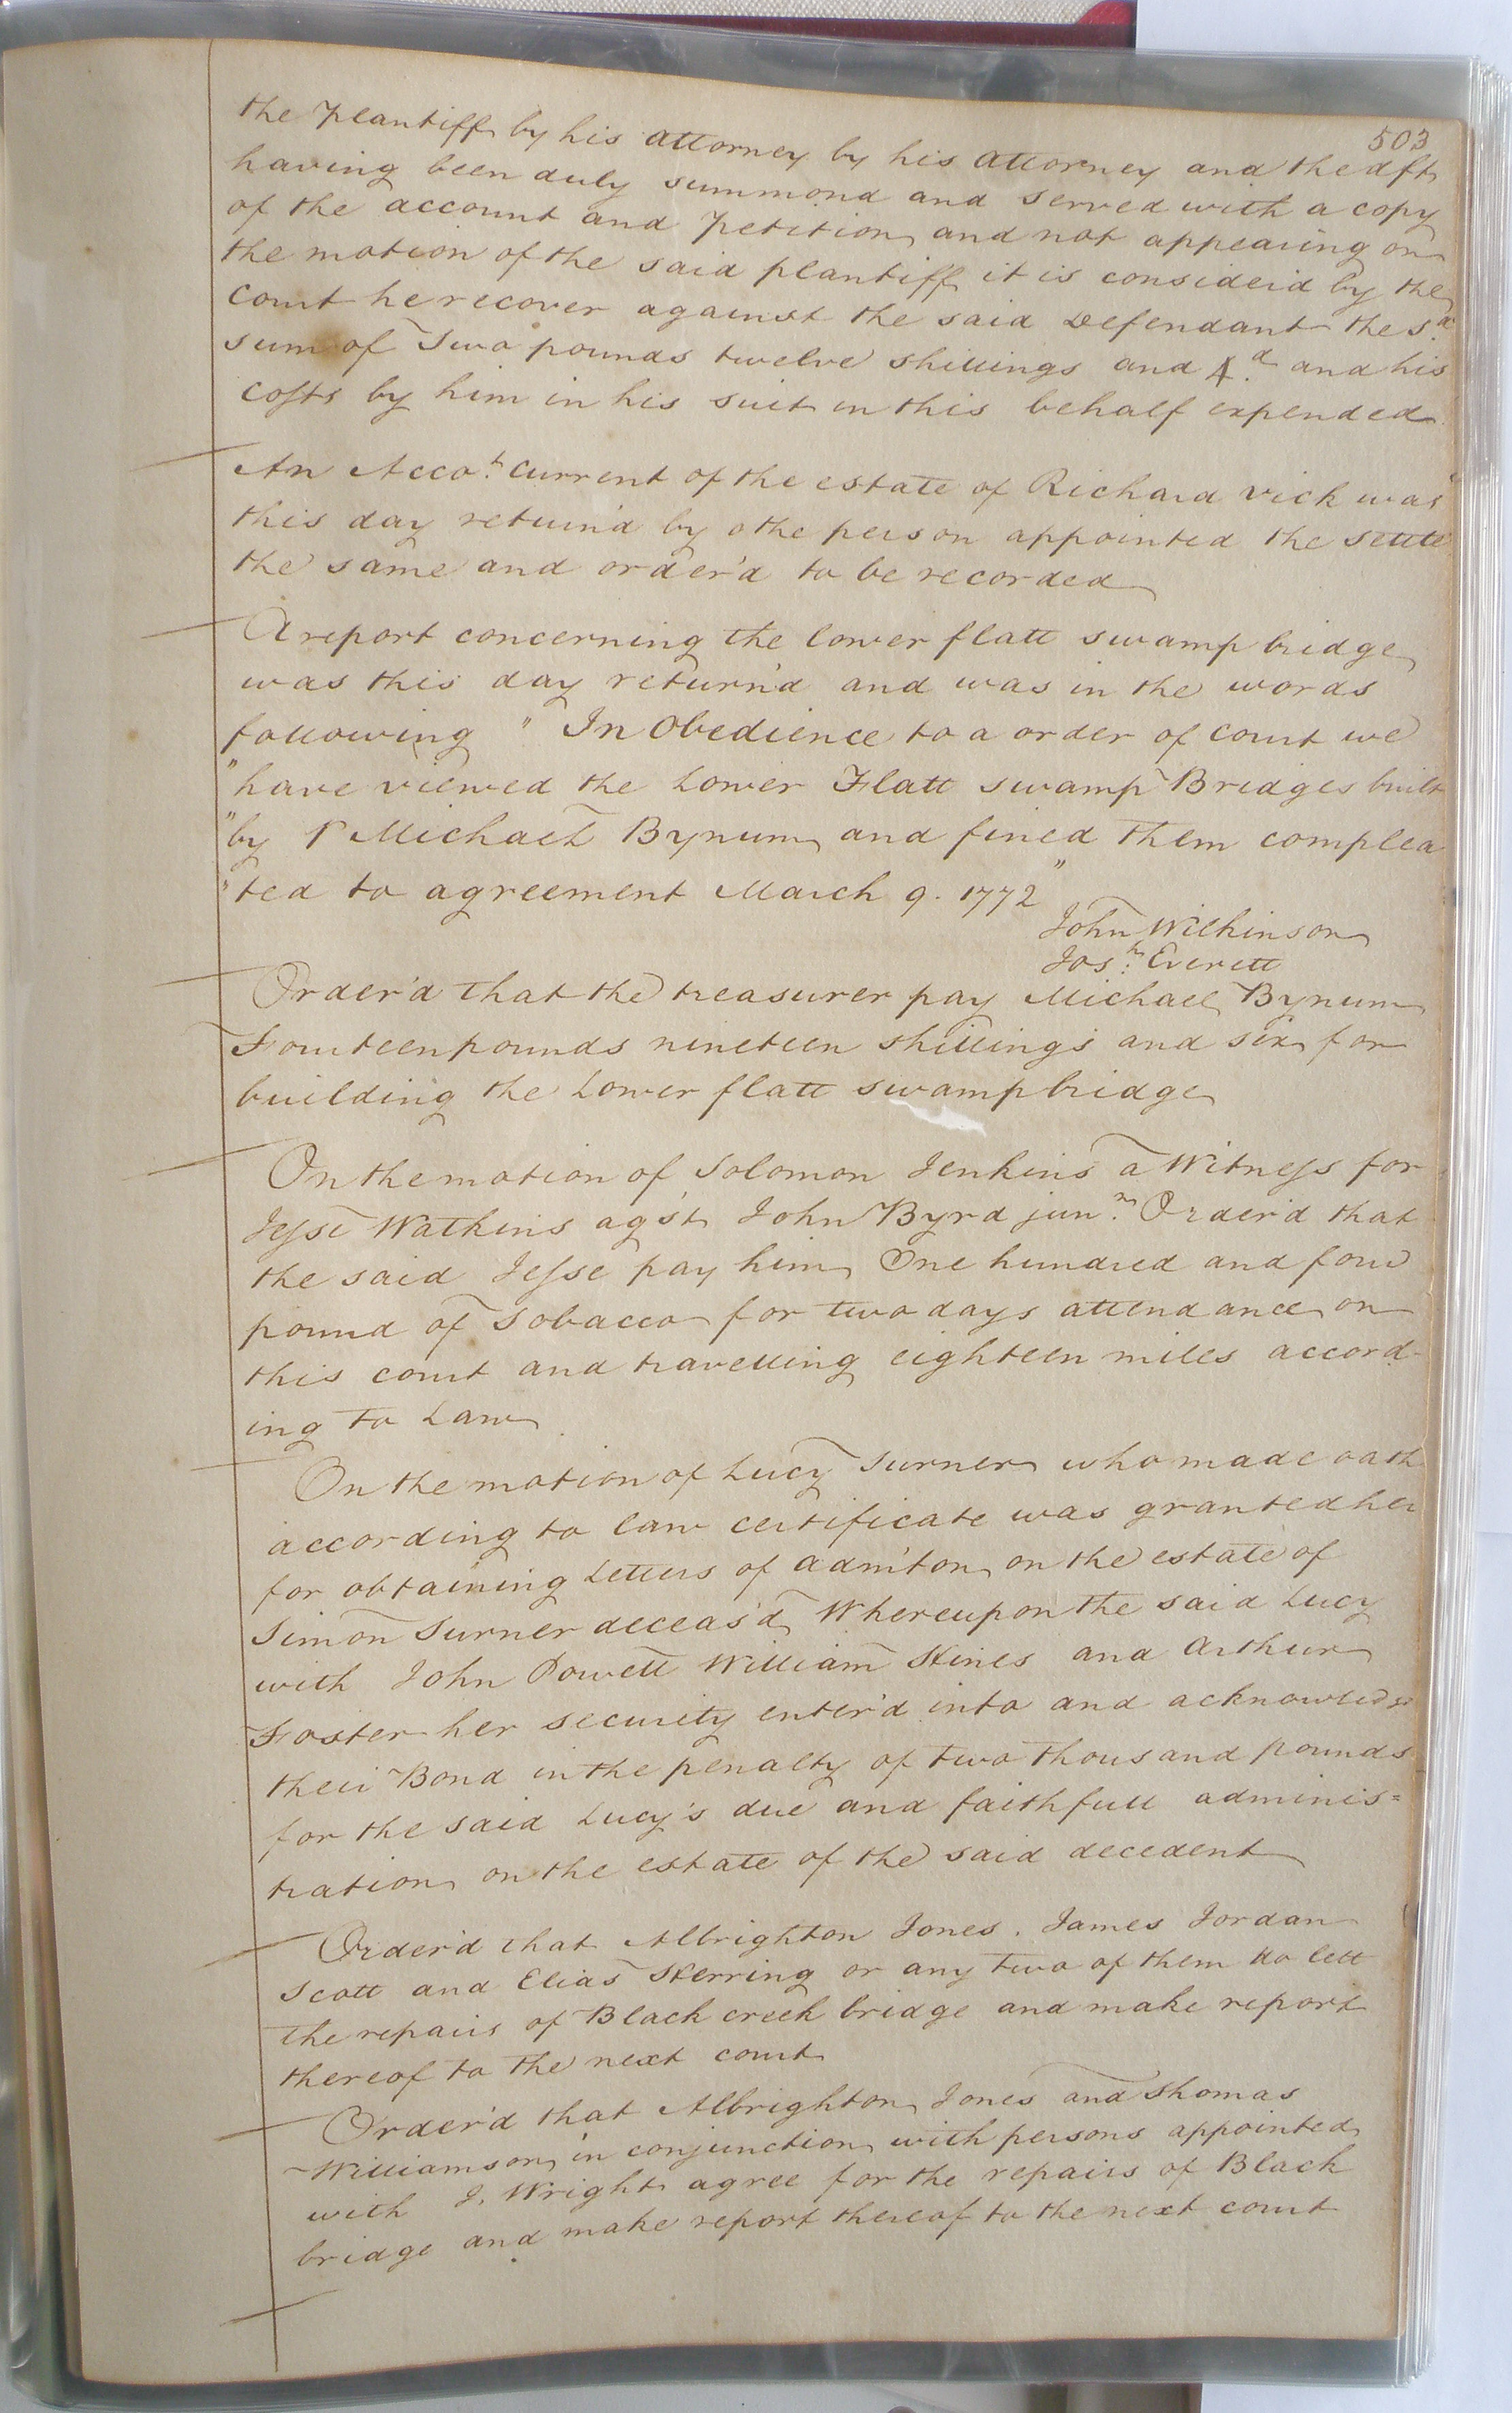 503
the plantiff by his attorney by his attorney and the dft
having been duly summond and served with a copy
of the account and petition and not appearing on
the motion of the said plantiff it is consider'd by the
Court he recover against the said Defendant the s.d
sum of Two pounds twelve shillings and 4.d and his
costs by him in his suit in this behalf expended
An Acco.t Current of the estate of Richard Vick was
this day return'd by othe person appointed the settle
the same and order'd to be recorded
A report concerning the lower flatt swamp bridge
was this day return'd and was in the words
following " In Obedience to a order of Court we
" have viewed the Lower Flatt swamp Bridges built
" by Michael Bynum and fined them complea
" ted to agreement March 9. 1772 "
John Wilkinson
Jos.h Everett
Order'd that the treasurer pay Michael Bynum
Fourteen pounds nineteen shillings and six for
building the Lower flatt swamp bridge
On the motion of Solomon Jenkins a Witness for
Jesse Watkins ag'st John Byrd jun.r Order'd that
the said Jesse pay him One hundred and four
pound of Tobacco for two days attendance on
this court and travelling eighteen miles accord-
ing to Law
On the motion of Lucy Turner who made oath
according to law certificate was granted her
for obtaining Letters of adm'ton on the estate of
Simon Turner deceas'd Whereupon the said Lucy
with John Powell William Hines and Arthur
Foster her security enter'd into and acknowledge
their Bond in the penalty of two thousand pounds
for the said Lucy's due and faithfull adminis=
tration on the estate of the said decedent
Order'd that Albrighton Jones. James Jordan
Scott and Elias Herring or any two of them do lett
the repairs of Black creek bridge and make report
thereof to the next court
Order'd that Albrighton Jones and Thomas
Williamson in conjunction with persons appointed
with J. Wright agree for the repairs of Black
bridge and make report thereof to the next court